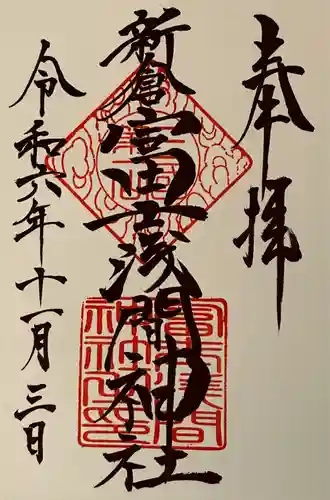 奉拝
新倉富士浅間神社
令和六年十一月三日